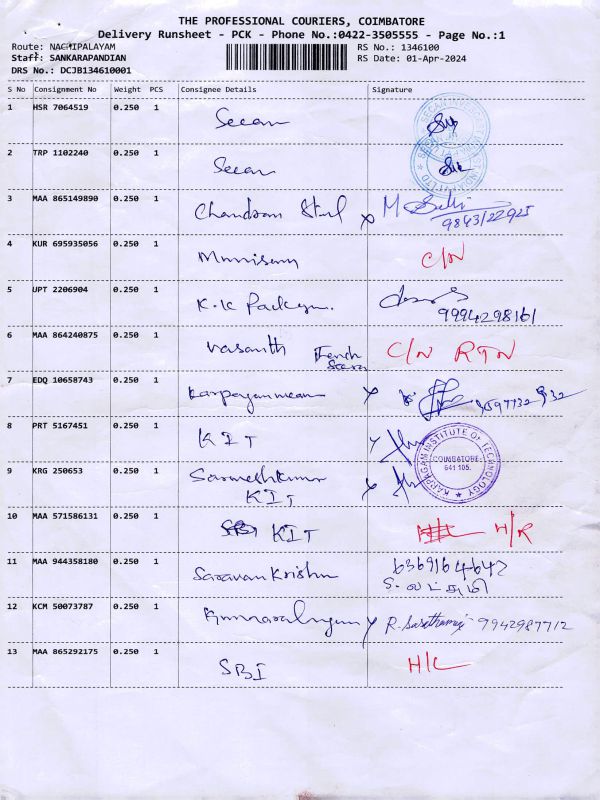 THE PROFESSIONAL COURIERS, COIMBATORE
Delivery Runsheet - PCK - Phone No.:0422-3505555 - Page No.:1
Route: NAGHIPALAYAM RS No.: 1346100
Staff: SANKARAPANDIAN RS Date: 01-Apr-2024
DRS No.: DCJB134610001
S No Consignment No Weight PCS Consignee Details Signature
1 HSR 7064519 0.250 1 Secan
2 TRP 1102240 0.250 1 Secan
3 MAA 865149890 0.250 1 Chandram Steel x M 9843122925
4 KUR 695935056 0.250 1 C/N
5 UPT 2206904 0.250 1 K.K
9994298161
6 MAA 864240875 0.250 1 Vasanth C/N RTN
7 EDQ 10658743 0.250 1 x
8 PRT 5167451 0.250 1 KIT
KARPAGAM INSTITUTE OF TECHNOLOGY
COIMBATORE-
641 105.
9 KRG 250653 0.250 1 x
KIT
10 MAA 571586131 0.250 1 KIT H/R
11 MAA 944358180 0.250 1 Saravan Krishn 6369164642
12 KCM 50073787 0.250 1 R. 9942987712
13 MAA 865292175 0.250 1 SBI H/L